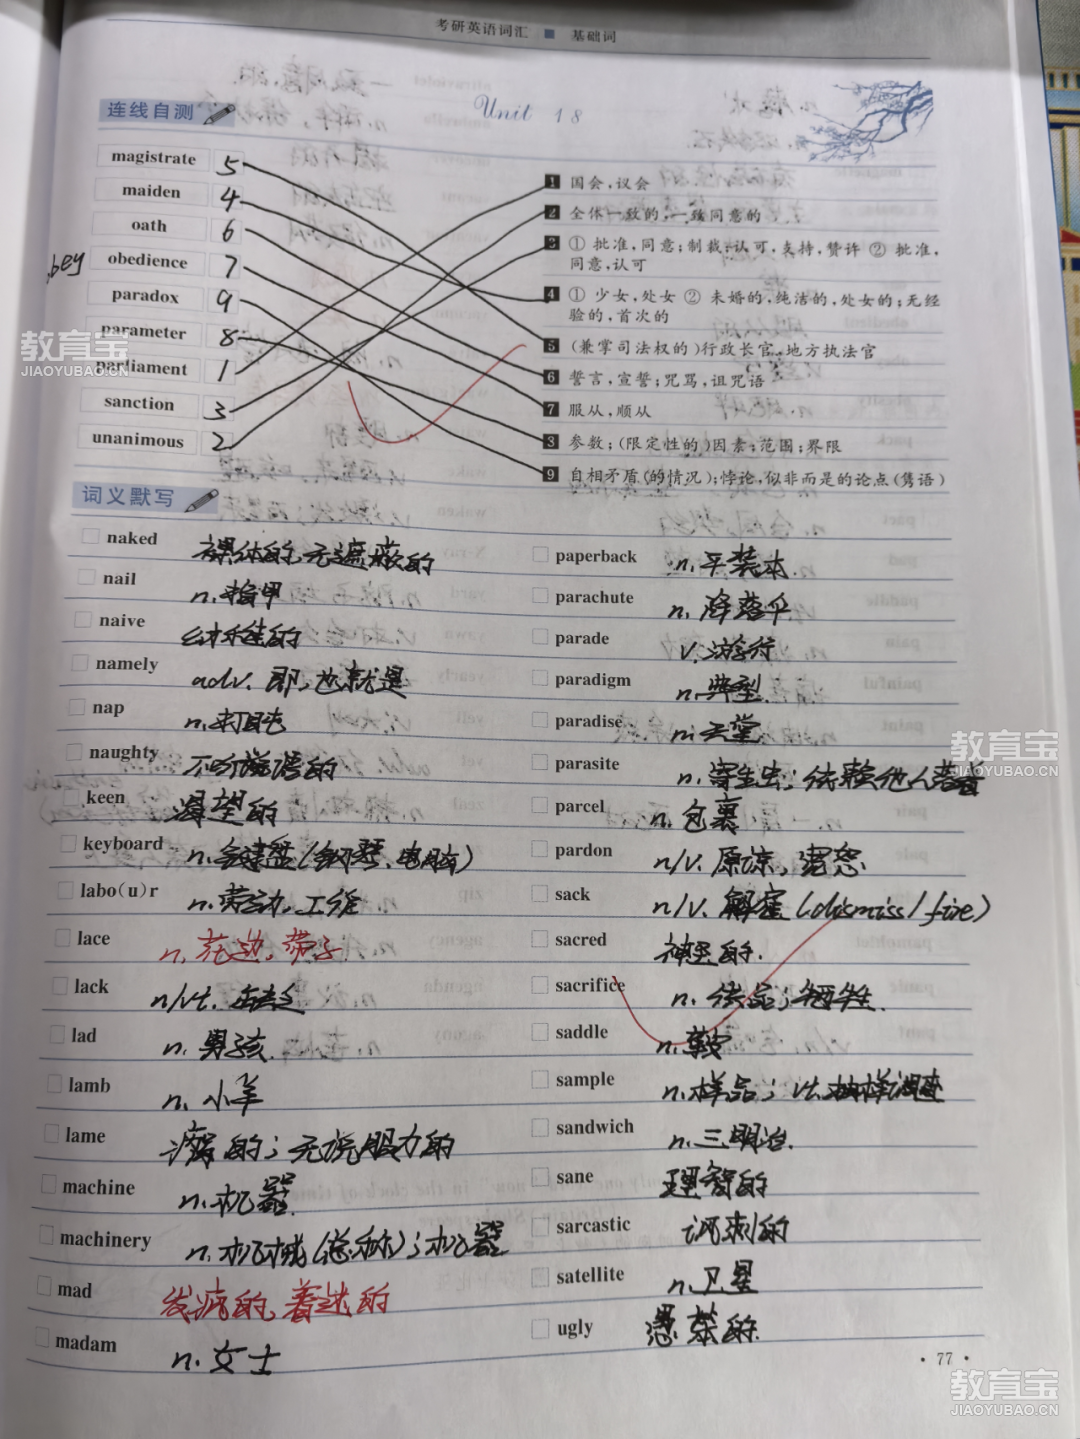 考研英语词汇 ■ 基础词
连线自测
Unit 18
magistrate 5
maiden 4
oath 6
obedience 7
obey
paradox 9
parameter 8
parliament 1
sanction 3
unanimous 2
1 国会,议会
2 全体一致的,一致同意的
3 ① 批准,同意;制裁;认可,支持,赞许 ② 批准,
同意,认可
4 ① 少女,处女 ② 未婚的,纯洁的,处女的;无经
验的,首次的
5 (兼掌司法权的)行政长官,地方执法官
6 誓言,宣誓;咒骂,诅咒语
7 服从,顺从
3 参数;(限定性的)因素;范围;界限
9 自相矛盾(的情况);悖论,似非而是的论点(隽语)
词义默写
naked 裸体的,无遮蔽的
nail n.指甲
naive 幼稚的
namely adv.即,也就是
nap n.打盹
naughty 不听话的
keen 渴望的
keyboard n.键盘(钢琴、电脑)
labo(u)r n.劳动,工作
lace n.花边,带子
lack n/vt.缺乏
lad n.男孩
lamb n.小羊
lame 瘸的;无说服力的
machine n.机器
machinery n.机械(总称);机器
mad 发疯的,着迷的
madam n.女士
paperback n.平装本
parachute n.降落伞
parade v.游行
paradigm n.典型
paradise n.天堂
parasite n.寄生虫;依赖他人者
parcel n.包裹
pardon n/v.原谅,宽恕
sack n/v.解雇(dismiss/fire)
sacred 神圣的.
sacrifice n.供品;牺牲
saddle n.鞍
sample n.样品;vt.抽样调查
sandwich n.三明治.
sane 理智的
sarcastic 讽刺的
satellite n.卫星
ugly 愚笨的
· 77 ·
教育宝
JIAOYUBAO.CN
教育宝
JIAOYUBAO.CN
教育宝
JIAOYUBAO.CN